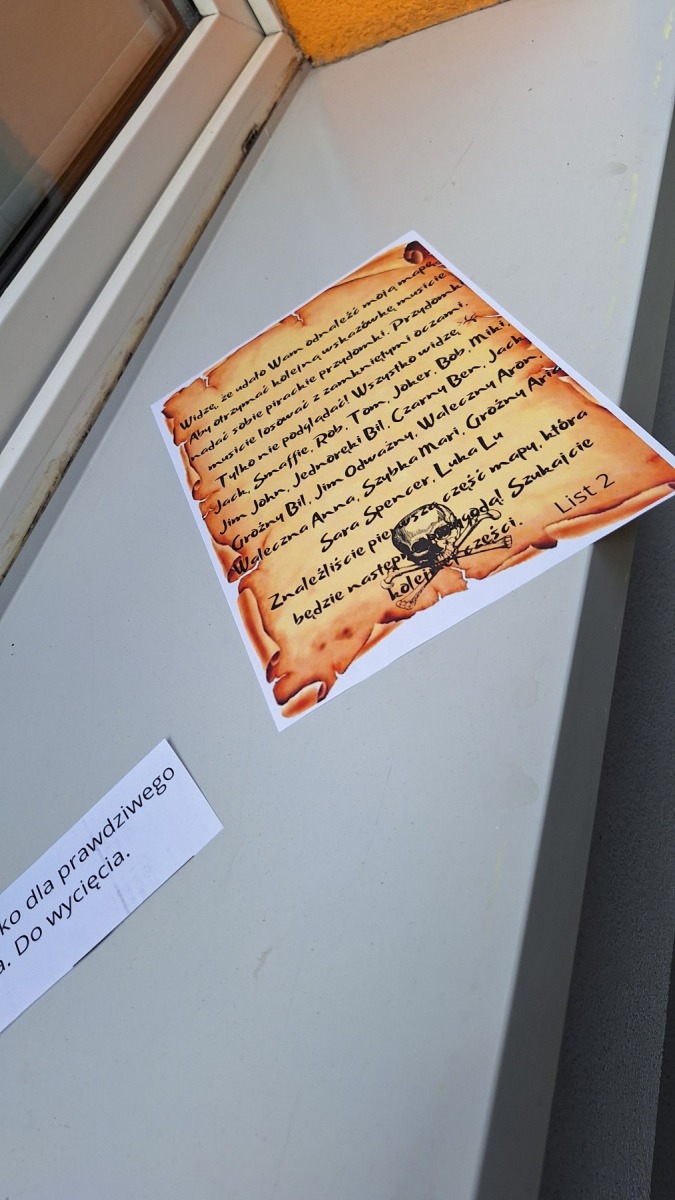 Widzę, że udało Wam odnaleźć moją mapę.
Aby otrzymać kolejną wskazówkę musicie
nadać sobie pirackie przydomki. Przydomki
musicie losować z zamkniętymi oczami.
Tylko nie podglądać! Wszystko widzę.
Jack, Smaffie, Rob, Tom, Joker, Bob, Miki,
Jim John, Jednoręki Bil, Czarny Ben, Jack
Groźny Bil, Jim Odważny, Waleczny Aron,
Waleczna Anna, Szybka Mari, Groźny
Sara Spencer, Luka Lu
Znaleźliście część mapy, która
będzie Szukajcie
części.
List 2
ko dla prawdziwego
a. Do wycięcia.